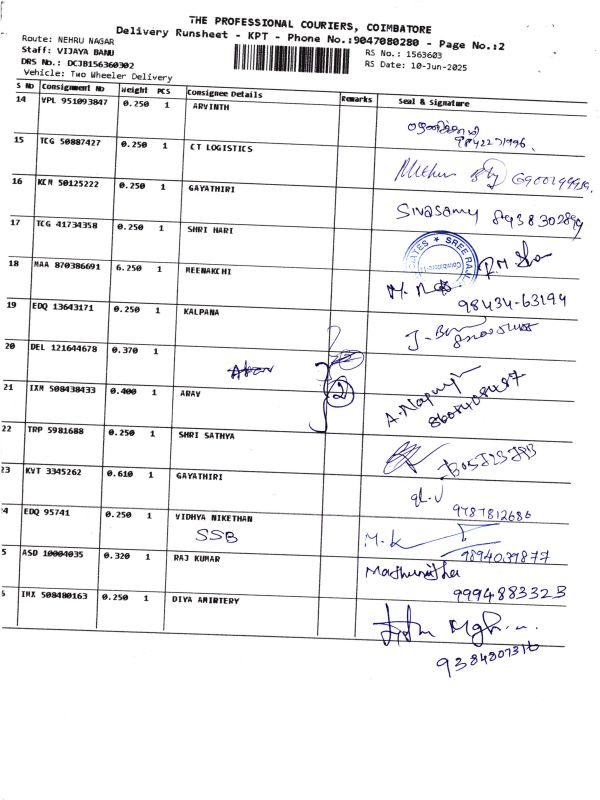 THE PROFESSIONAL COURIERS, COIMBATORE
Delivery Runsheet - KPT - Phone No.:9047080280 - Page No.:2
Route: NEHRU NAGAR
RS No.: 1563603
Staff: VIJAYA BANU
RS Date: 10-Jun-2025
DRS No.: DCJB156360302
Vehicle: Two Wheeler Delivery
S No Consignment No Weight PCS Consignee Details Remarks Seal & Signature
14 VPL 951093847 0.250 1 ARVINTH
9842271996.
15 TCG 50887427 0.250 1 CT LOGISTICS
16 KCM 50125222 0.250 1 GAYATHIRI
Sivasamy
17 TCG 41734358 0.250 1 SHRI HARI
18 MAA 870386691 6.250 1 MEENAKCHI
98434-63194
19 EDQ 13643171 0.250 1 KALPANA
20 DEL 121644678 0.370 1
21 IXM 508438433 0.400 1 ARAV
2
22 TRP 5981688 0.250 1 SHRI SATHYA
23 KVT 3345262 0.610 1 GAYATHIRI
9787812686
24 EDQ 95741 0.250 1 VIDHYA NIKETHAN
SSB
M.K
9894039877
5 ASD 10004035 0.320 1 RAJ KUMAR
9994883323
6 IMX 508480163 0.250 1 DIYA AMIRTERY
9384807316